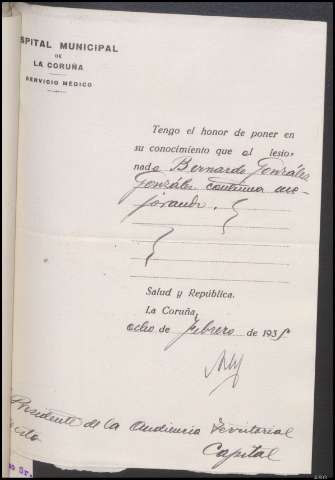 SPITAL MUNICIPAL
DE
LA CORUÑA
SERVICIO MÉDICO
Tengo el honor de poner en
su conocimiento que el lesio-
nado Bernardo González
González continua me-
jorando.
Salud y República.
La Coruña,
ocho de febrero de 1935
Presidente de la Audiencia Territorial
Capital